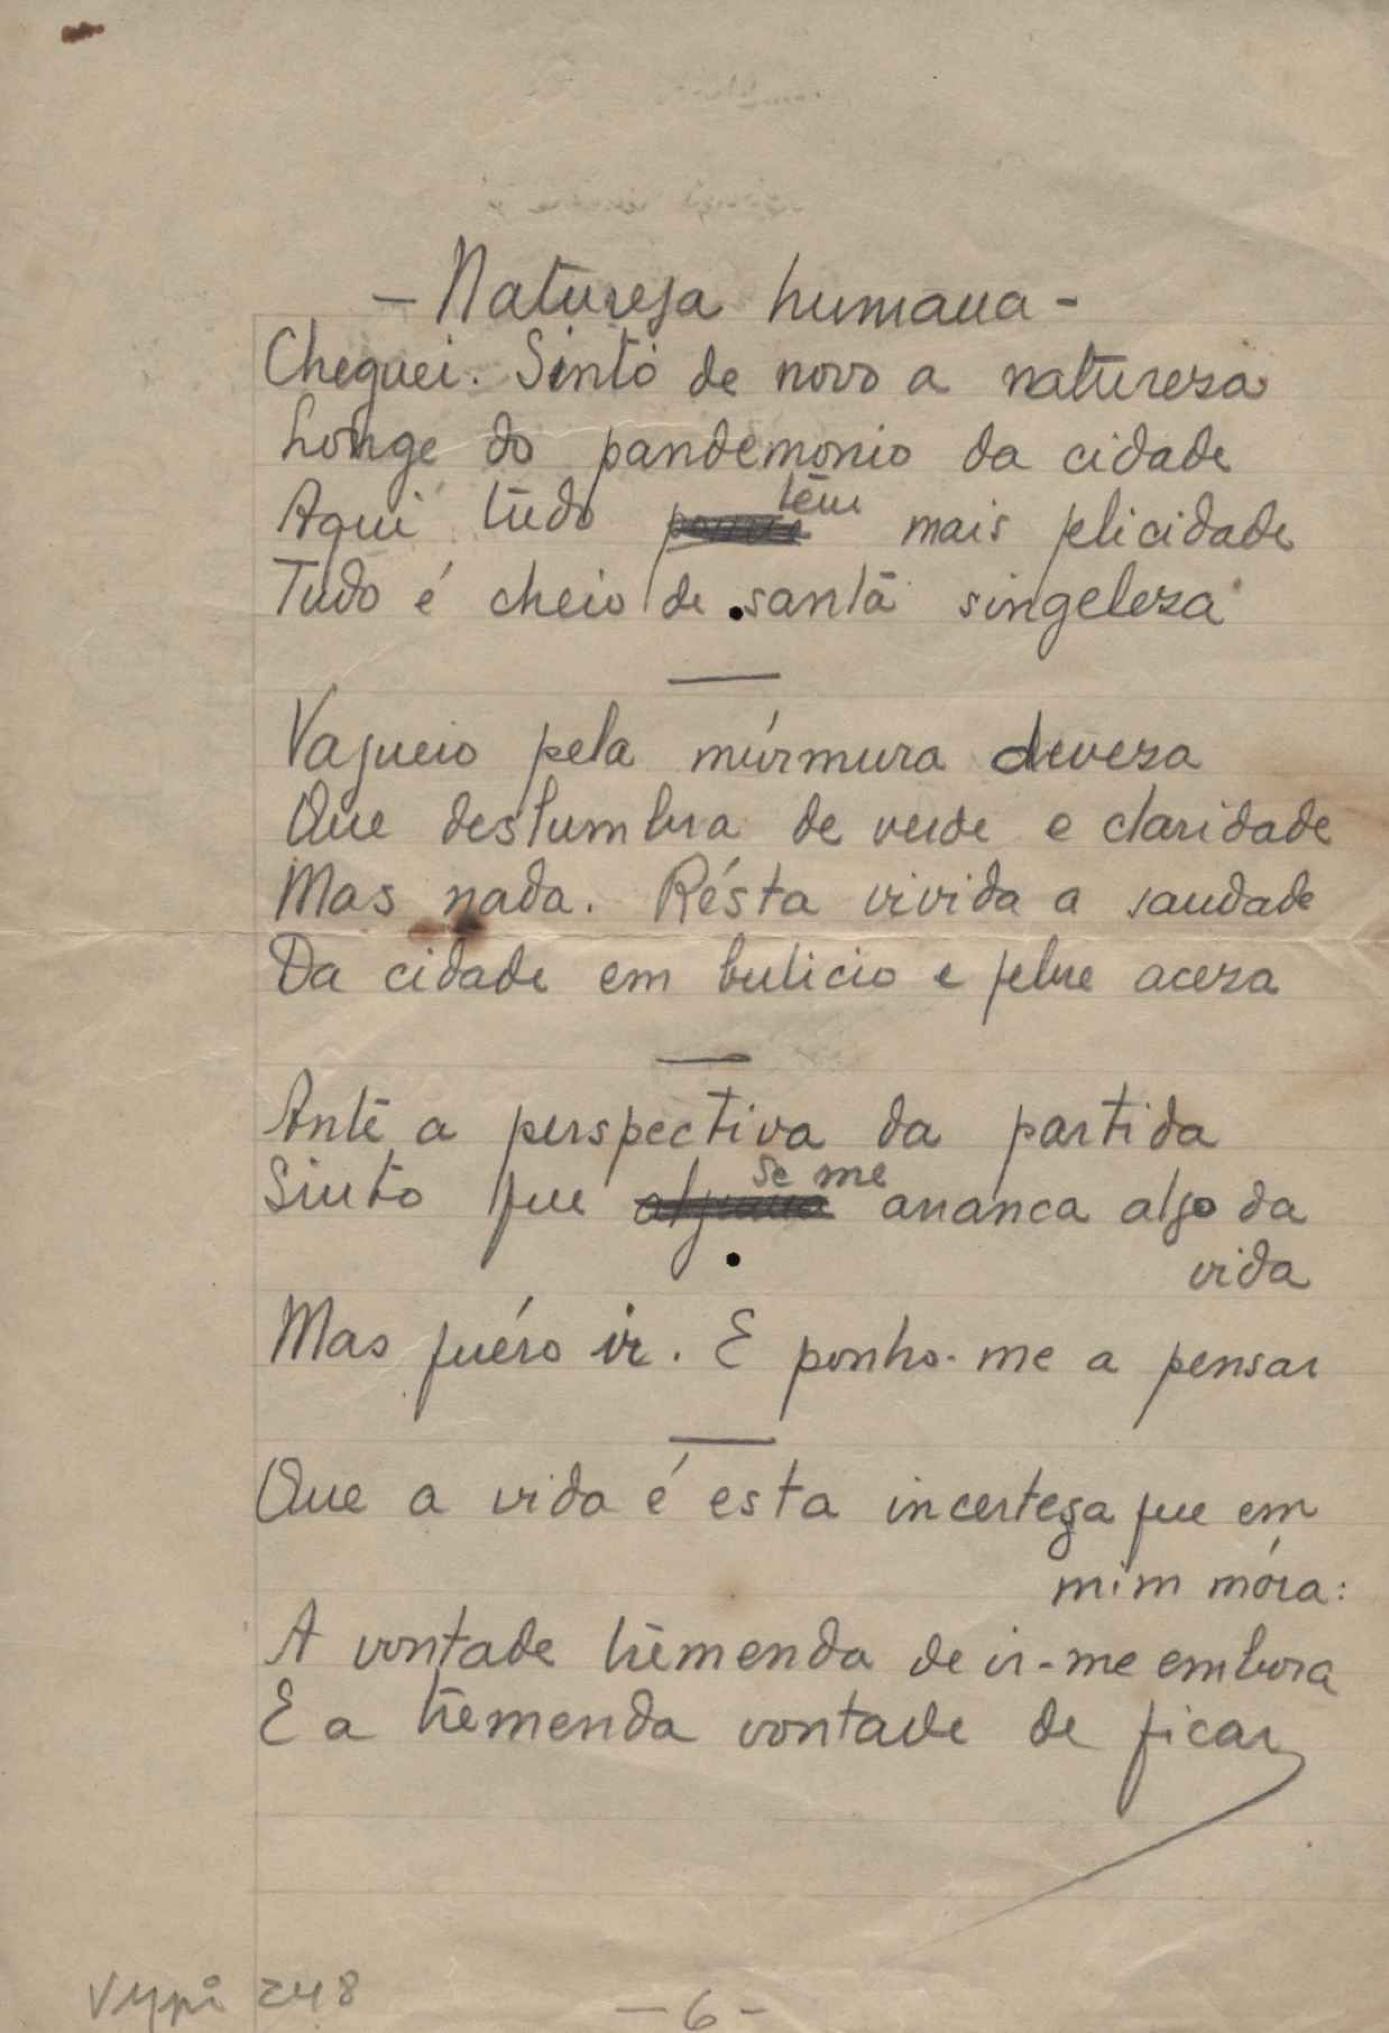 - Naturesa humana -
Cheguei. Sinto de novo a natureza
Longe do pandemonio da cidade
Aqui tudo têm mais felicidade
Tudo é cheio de santa singeleza
Vagueio pela múrmura deveza
Que deslumbra de verde e claridade
Mas nada. Résta vivida a saudade
Da cidade em bulicio e febre aceza
Ante a perspectiva da partida
Sinto que se me arranca algo da
vida
Mas quéro ir. E ponho-me a pensar
Que a vida é esta incerteza que em
mim móra:
A vontade tremenda de ir-me embora
E a tremenda vontade de ficar
248
- 6 -